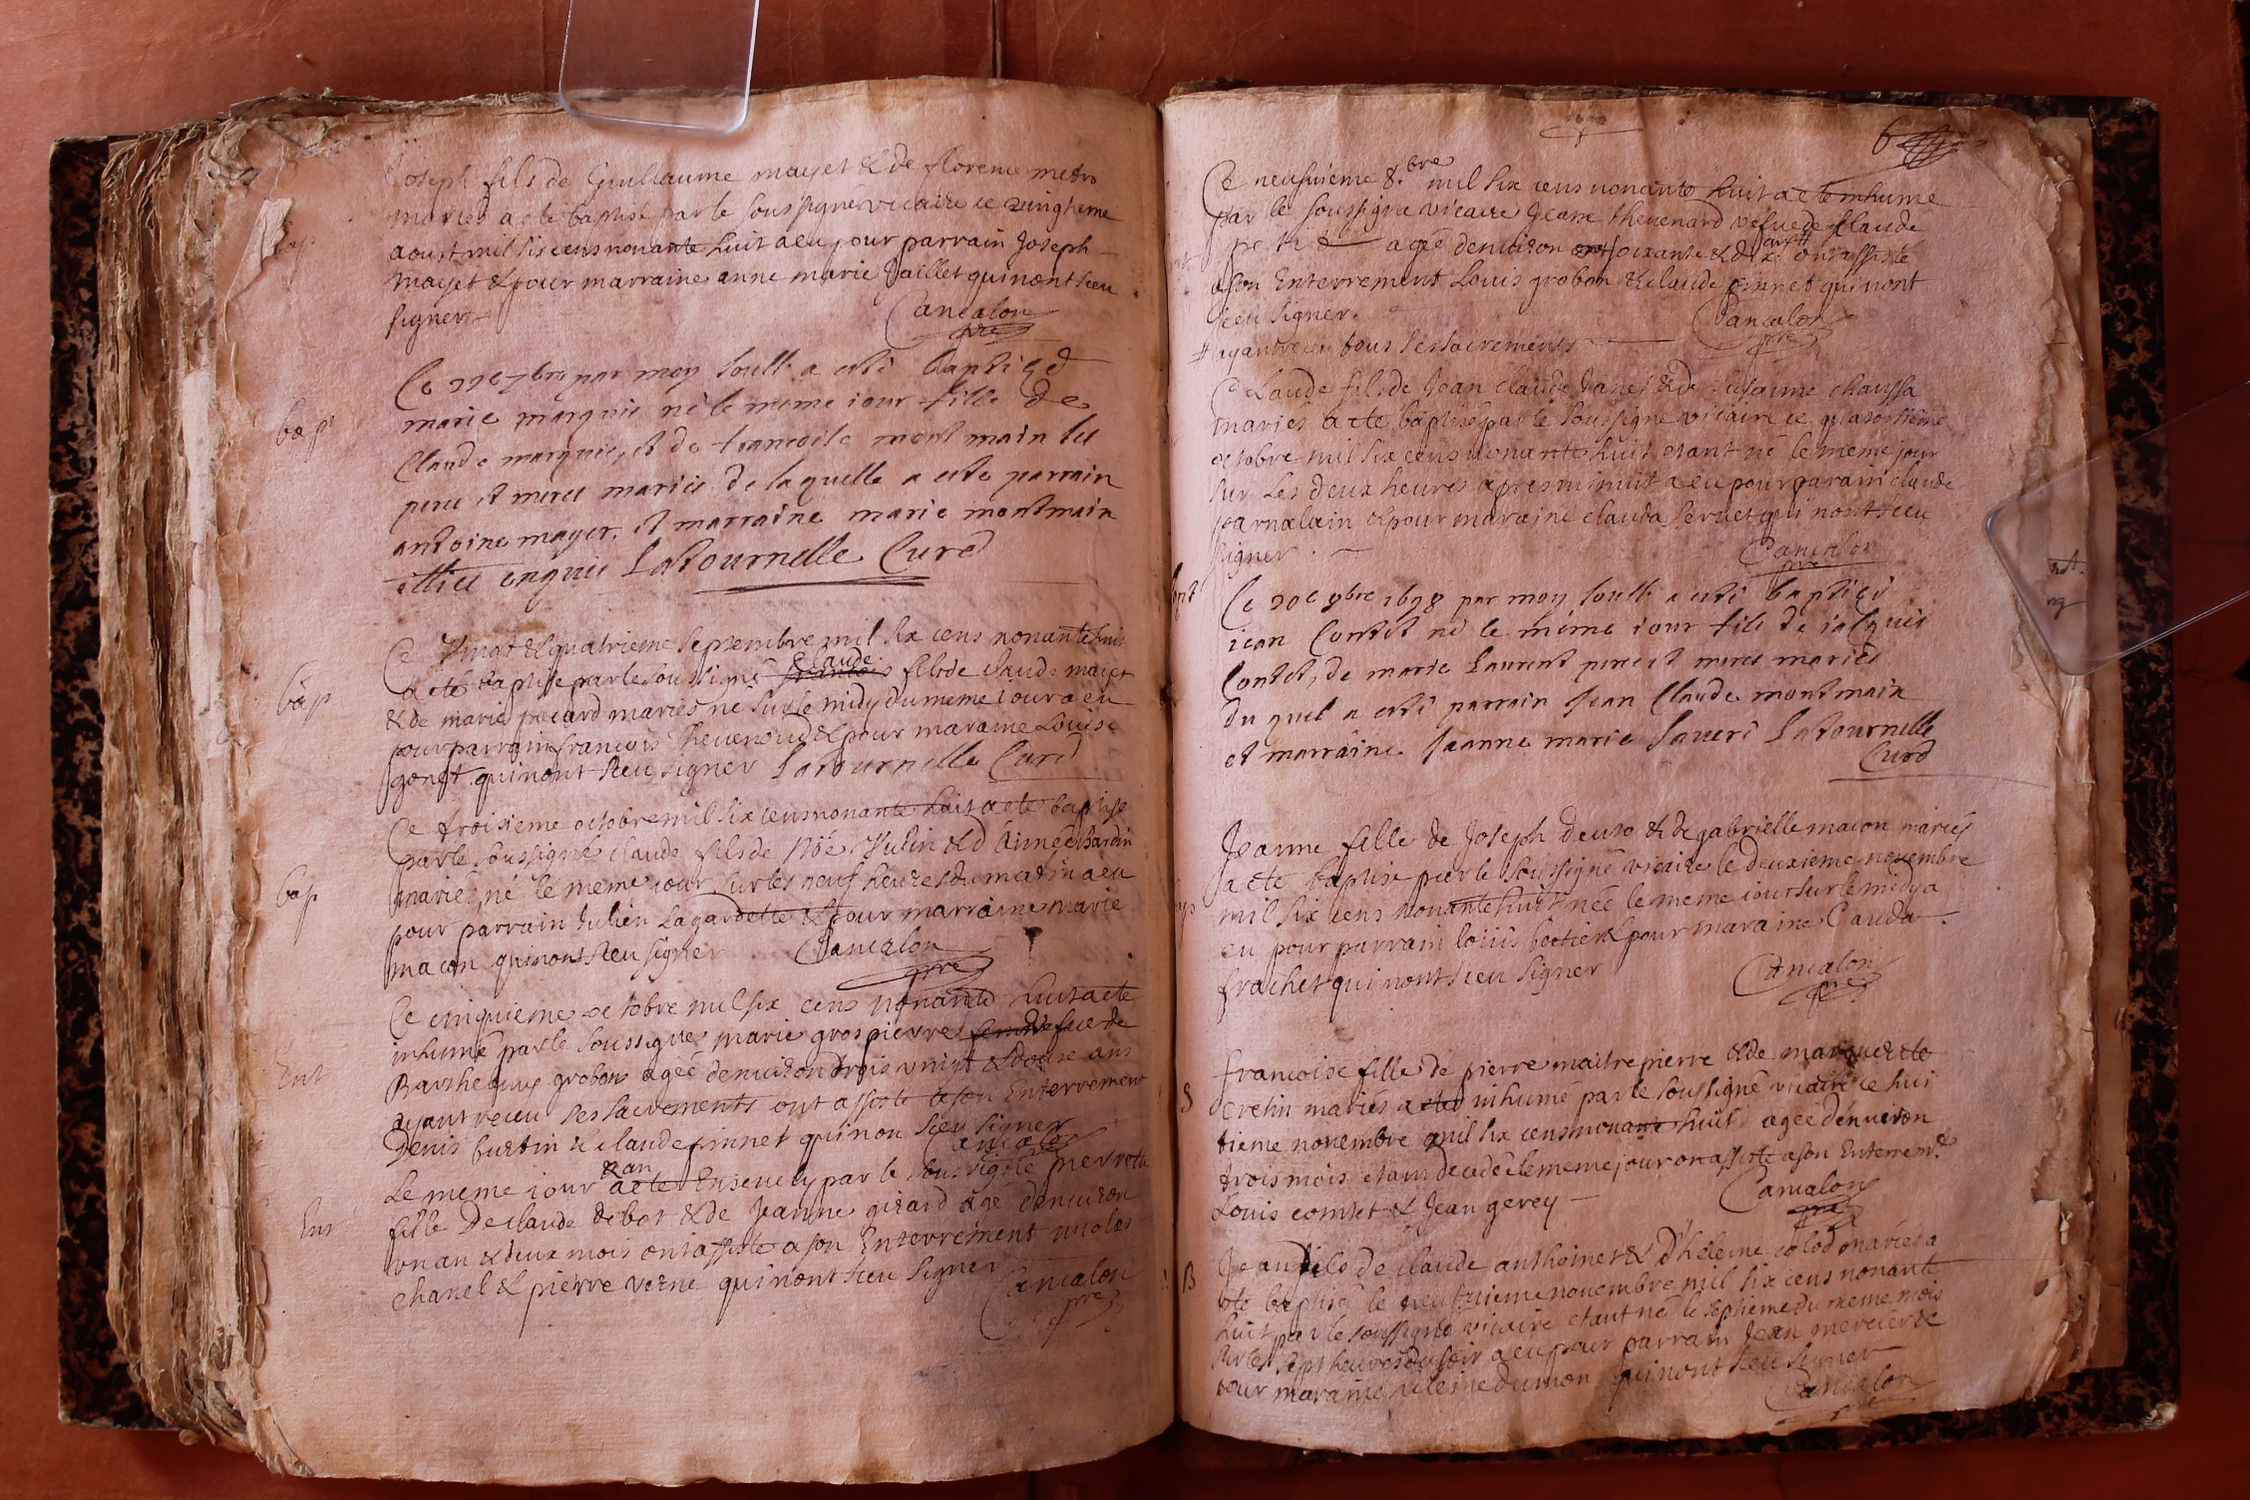 Joseph fils de Guillaume mayet & de florence metro
mariés a eté baptisé par le soussigné vicaire ce vingtieme
aoust mil six cens nonante huit a eu pour parrain Joseph
mayet & pour marraine anne marie Jaillet qui nont sceu
signer
Cancalon
pre
bap
Ce 22e 7bre par moy soulb a esté baptiséd
marie marquis né le mesme iour fille de
Claude marquis, et de francoise montmain les
pere et meres mariés de laquelle a esté parrain
antoine mayer, et marraine marie montmain
enquis Latournelle Curé
bap
Ce Vingt & quatrieme septembre mil six cens nonante huit
a eté baptisé par le soussigné Claude fils de Claude mayet
& de marie pecard mariés né sur le midy du meme iour a eu
pour parrain francois thevenoud & pour maraine Louise
gonet qui nont sceu signer Latournelle Curé
bap
Ce troisieme octobre mil six cens nonante huit a eté baptisé
par le soussigné claude fils de Noé Hulin & d' Aimée bardin
mariés, né le meme iour sur les neuf heures du matin a eu
pour parrain Julien Lagardette & pour marraine marie
macon qui nont sceu signer Cancalon
pre
Ent
Ce cinquieme octobre mil six cens nonante huit a eté
inhumé par le soussigne marie grospierre vefue de
Barthelemy grobon agée denuiron trois vingt & douze ans
ayant receu ses sacrements ont assisté a son Enterrement
Denis burtin & claude pinnet qui non sceu signer
Cancalon
Ent
Le meme iour & an a eté Enseuely par le soussigné pierrette
fille De claude debot & de Jeanne girard agé denuiron
vn an & deux mois ont assisté a son Enterrement nicolas
chanel & pierre verne qui nont sceu signer
Cancalon
pre
6
Ce neufuieme 8.bre mil six cens nonante huit a eté inhumé
par le soussigne vicaire Jeanne thevenard vefue de claude
petit agée denuiron soixante & dix ans # ont assisté
a son Enterrement Louis grobon & claude pinnet qui nont
sceu signer.
Cancalon
pre
# ayant receu tous ses sacrements
Claude fils de Jean claude Janet & de Susanne chaussa
mariés a eté baptisé par le soussigne vicaire ce quatortieme
octobre mil six cens nonante huit etant né le meme jour
sur les deux heures apres minuit a eu pour parain claude
journalain & pour maraine clauda seruet qui nont sceu
signer.
Cancalon
pre
Ce 20e 8bre 1698 par moy soulb a esté baptisés
iean Contet né le mesme iour fils de iasques
Contet, de marie Laurent pere et meres mariés
du quel a esté parrain Jean Claude montmain
et marraine Jeanne marie Saueri Latournelle
Curé
Jeanne fille de Joseph deuro & de gabrielle macon mariés
a eté baptisé par le soussigné vicaire le deuxieme novembre
mil six cens nonante huit née le meme iour sur le midy a
eu pour parrain loüis bertier & pour maraine Clauda
frachet qui nont sceu signer
Cancalon
pre
S
francoise fille de pierre maitrepierre & de marguerite
cretin mariés a eté inhumé par le soussigné vicaire ce hui
tieme novembre mil six cens nonante huit agée denuiron
trois mois etant decedé le meme jour on assisté a son Enterremt
Louis contet & Jean gerey
Cancalon
pre
B
Jean fils de claude anthoinet & d'heleine colod mariés a
eté baptisé le neufuieme novembre mil six cens nonante
huit par le soussigné vicaire etant né le septieme du meme mois
sur les sept heures du soir a eu pour parrain Jean mercier &
pour maraine heleine dumon qui nont sceu signer
Cancalon
pre